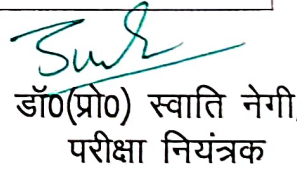 डॉ0(प्रो0) स्वाति नेगी,
परीक्षा नियंत्रक